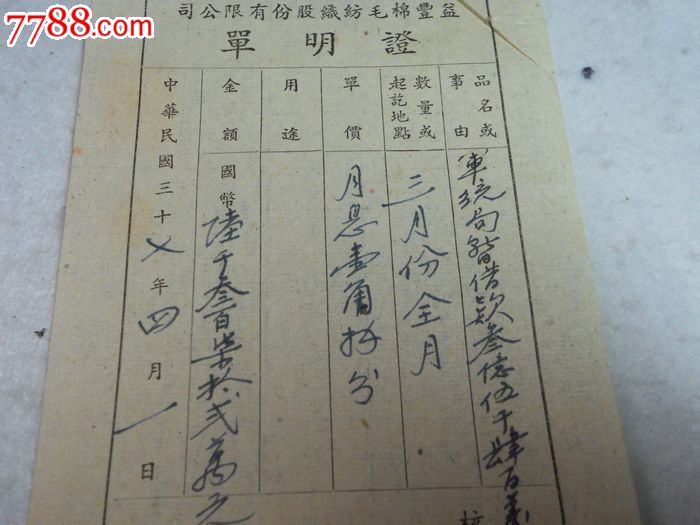 7788.com
益豐棉毛紡織股份有限公司
證明單
品名或事由
軍統局暫借款叁億伍千肆百萬
數量或起訖地點
三月份全月
單價
月息壹角捌分
用途
金額
國幣陸千叁百柒拾弍萬元
中華民國三十七年四月一日